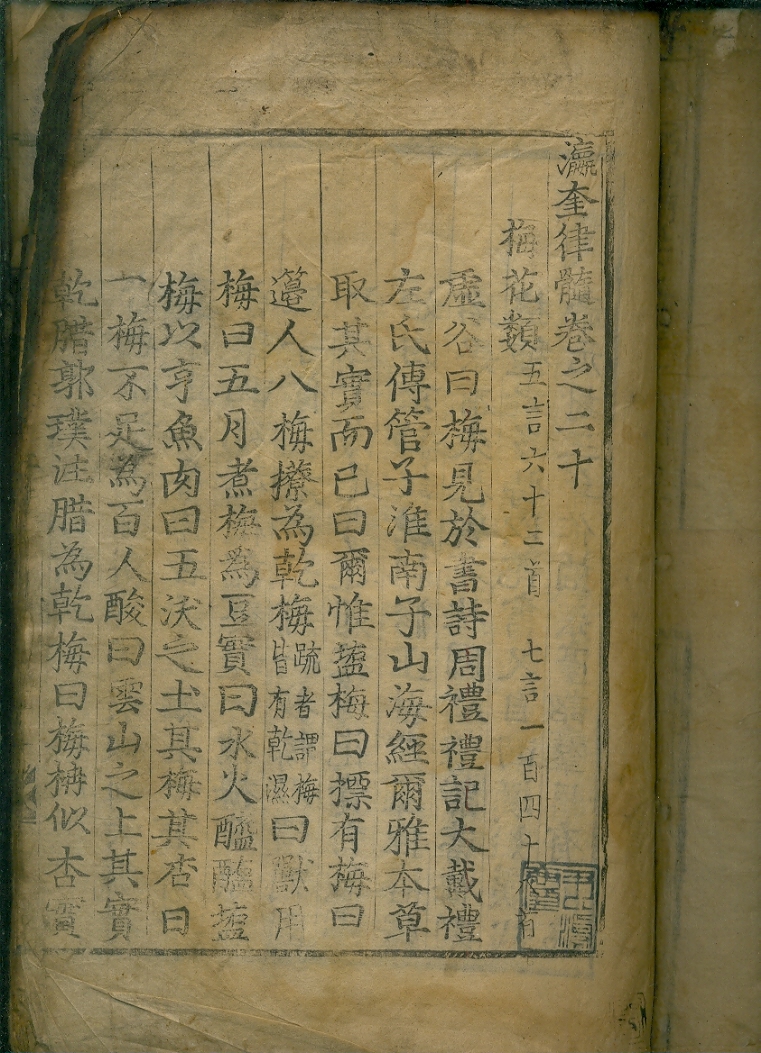 瀛奎律髓卷之二十
梅花類 五言六十三首 七言一百四十 首
虛谷曰梅見於書詩周禮禮記大戴禮
左氏傳管子淮南子山海經爾雅本草
取其實而已曰爾惟盬梅曰摽有梅曰
籩人八梅䕩為乾梅疏者謂梅皆有乾濕曰獸用
梅曰五月煮梅為豆實曰水火醯醢盬
梅以亨魚肉曰五沃之土其梅其杏曰
一梅不足為百人酸曰雲山之上其實
乾腊郭璞注腊為乾梅曰梅柟似杏實